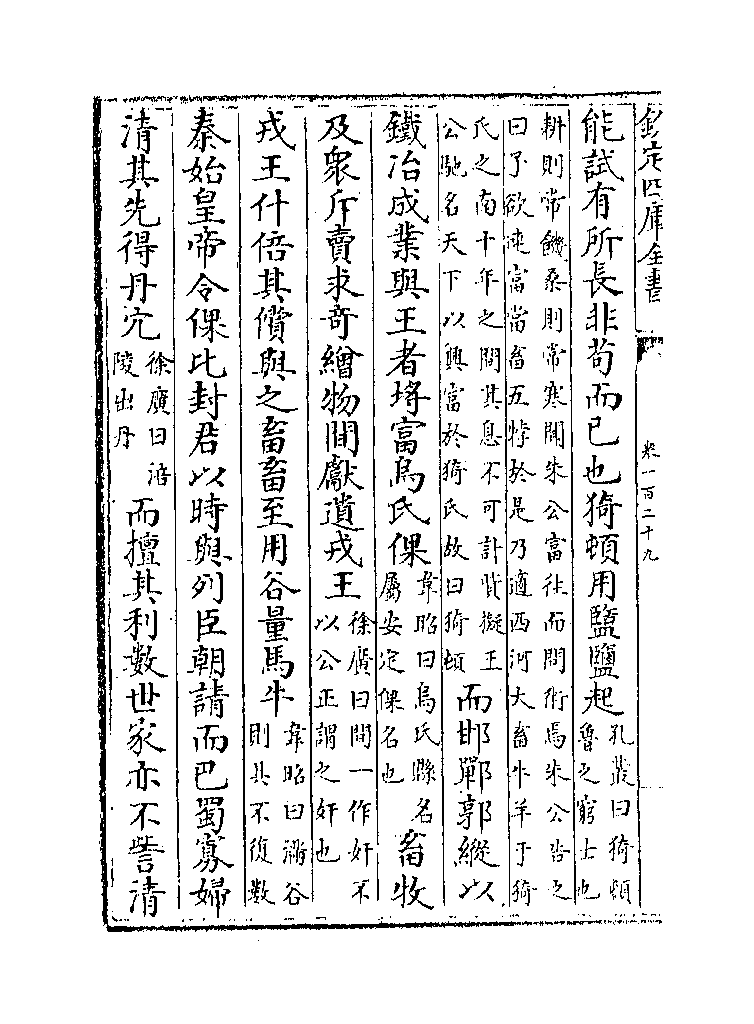 欽定四庫全書 卷一百二十九
能試有所長非苟而已也猗頓用盬鹽起孔叢曰猗頓魯之窮士也
耕則常饑桑則常寒聞朱公富往而問術焉朱公告之
曰子欲速富當畜五牸於是乃適西河大畜牛羊于猗
氏之南十年之間其息不可計貲擬王公馳名天下以興富於猗氏故曰猗頓而邯鄲郭縱以
鐵冶成業與王者埒富烏氏倮韋昭曰烏氏縣名屬安定倮名也畜牧
及衆斥賣求奇繒物間獻遺戎王徐廣曰間一作奸不以公正謂之奸也
戎王什倍其償與之畜畜至用谷量馬牛韋昭曰滿谷則具不復數
秦始皇帝令倮比封君以時與列臣朝請而巴蜀寡婦
清其先得丹穴徐廣曰涪陵出丹而擅其利數世家亦不訾清